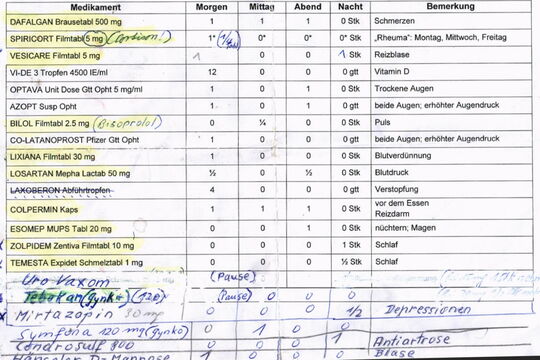 Medikament Morgen Mittag Abend Nacht Bemerkung
DAFALGAN Brausetabl 500 mg 1 1 1 0 Stk Schmerzen
SPIRICORT Filmtabl 5 mg (Cortison!) 1* (1/2 0* 0* 0 Stk „Rheuma": Montag, Mittwoch, Freitag
VESICARE Filmtabl 5 mg 1 0 0 1 Stk Reizblase
VI-DE 3 Tropfen 4500 IE/ml 12 0 0 0 gtt Vitamin D
OPTAVA Unit Dose Gtt Opht 5 mg/ml 1 0 1 0 Stk Trockene Augen
AZOPT Susp Opht 1 0 1 0 gtt beide Augen; erhöhter Augendruck
BILOL Filmtabl 2.5 mg (Bisoprolol) 0 ¼ 0 0 Stk Puls
CO-LATANOPROST Pfizer Gtt Opht 1 0 0 0 gtt beide Augen; erhöhter Augendruck
LIXIANA Filmtabl 30 mg 1 0 0 0 Stk Blutverdünnung
LOSARTAN Mepha Lactab 50 mg ½ 0 ½ 0 Stk Blutdruck
LAXOBERON Abführtropfen 4 0 0 0 gtt Verstopfung
COLPERMIN Kaps 1 1 1 0 Stk vor dem Essen
Reizdarm
ESOMEP MUPS Tabl 20 mg 0 0 1 0 Stk nüchtern; Magen
ZOLPIDEM Zentiva Filmtabl 10 mg 0 0 0 1 Stk Schlaf
TEMESTA Expidet Schmelztabl 1 mg 0 0 0 ½ Stk Schlaf
Uro Vaxom (Pause)
Tebokan (Gynko) (120) (Pause) 0 0 0
Mirtazapin 30 mg 0 0 0 1/2 Depressionen
Symfona 120 mg (gynko) 0 1 0 0
Condrosulf 800 0 0 0 1 Antiartrose
D-Mannose 1 0 0 0 Blase